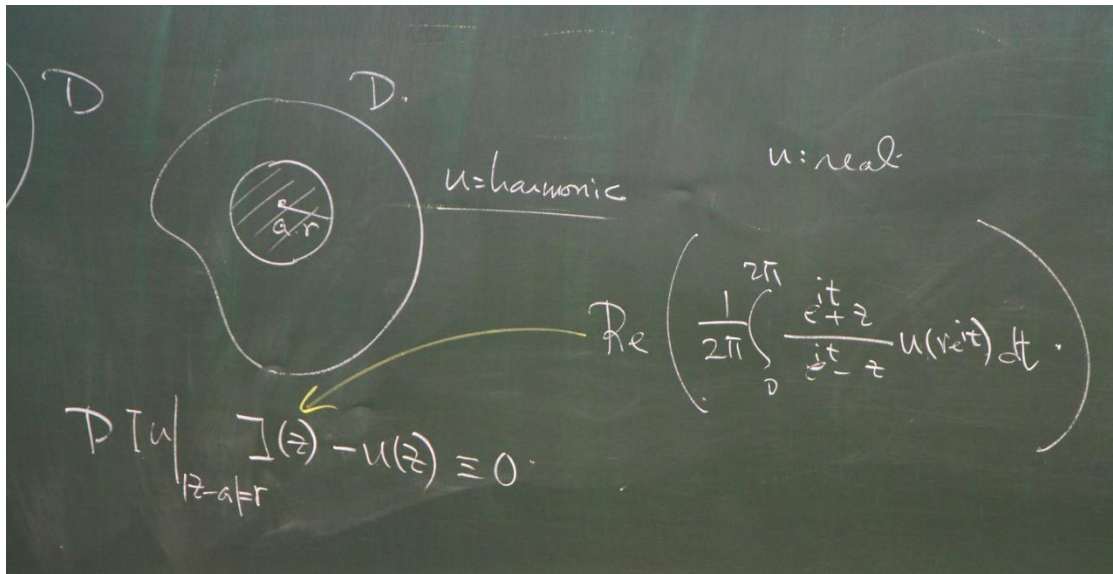 D
D.
u=harmonic
u: real
a r
Re ( 1/2π ∫_0^{2π} (e^{it}+z)/(e^{it}-z) u(re^{it}) dt . )
P[u|_{|z-a|=r}](z) - u(z) ≡ 0.